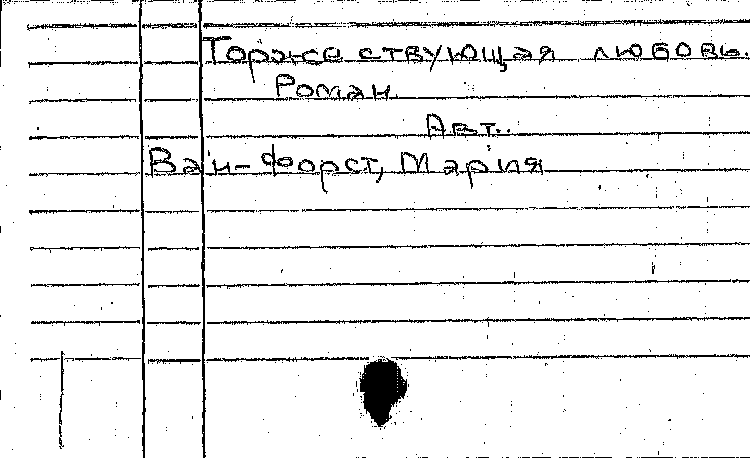 Торжествующая любовь.
Роман.
Авт.:
Ван-Форст, Мария